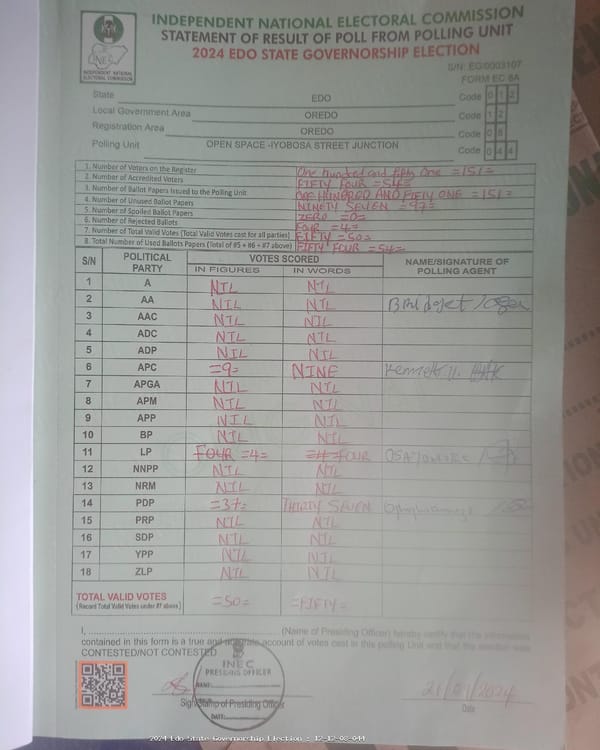 INDEPENDENT NATIONAL ELECTORAL COMMISSION
STATEMENT OF RESULT OF POLL FROM POLLING UNIT
2024 EDO STATE GOVERNORSHIP ELECTION
INEC
INDEPENDENT NATIONAL ELECTORAL COMMISSION
S/N: EG/0003107
FORM EC 8A
State EDO Code 0 1 2
Local Government Area OREDO Code 1 2
Registration Area OREDO Code 0 8
Polling Unit OPEN SPACE -IYOBOSA STREET JUNCTION Code 0 4 4
1. Number of Voters on the Register One hundred and fifty One =151=
2. Number of Accredited Voters FIFTY FOUR =54=
3. Number of Ballot Papers Issued to the Polling Unit ONE HUNDRED AND FIFTY ONE =151=
4. Number of Unused Ballot Papers NINETY SEVEN =97=
5. Number of Spoiled Ballot Papers ZERO =0=
6. Number of Rejected Ballots FOUR =4=
7. Number of Total Valid Votes (Total Valid Votes cast for all parties) FIFTY =50=
8. Total Number of Used Ballots Papers (Total of #5 + #6 + #7 above) FIFTY FOUR =54=
S/N POLITICAL PARTY VOTES SCORED NAME/SIGNATURE OF POLLING AGENT
IN FIGURES IN WORDS
1 A NIL NIL
2 AA NIL NIL
3 AAC NIL NIL
4 ADC NIL NIL
5 ADP NIL NIL
6 APC =9= NINE Kenneth
7 APGA NIL NIL
8 APM NIL NIL
9 APP NIL NIL
10 BP NIL NIL
11 LP FOUR =4= =4= FOUR
12 NNPP NIL NIL
13 NRM NIL NIL
14 PDP =37= THIRTY SEVEN
15 PRP NIL NIL
16 SDP NIL NIL
17 YPP NIL NIL
18 ZLP NIL NIL
TOTAL VALID VOTES =50= =FIFTY=
(Record Total Valid Votes under #7 above)
I, (Name of Presiding Officer) hereby certify that the information
contained in this form is a true and accurate account of votes cast in this polling Unit and that the election was
CONTESTED/NOT CONTESTED
INEC
PRESIDING OFFICER
NAME:
Sign/Stamp of Presiding Officer
DATE:
21/09/2024
Date
2024 Edo State Governorship Election : 12-12-08-044